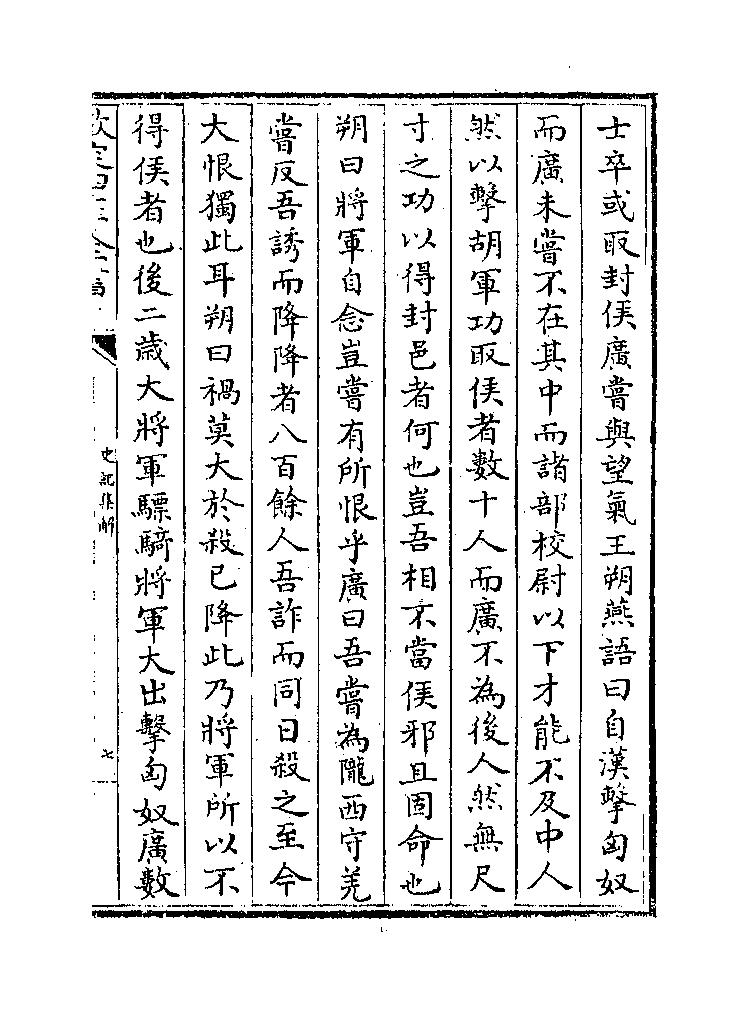 士卒或取封侯廣嘗與望氣王朔燕語曰自漢擊匈奴
而廣未嘗不在其中而諸部校尉以下才能不及中人
然以擊胡軍功取侯者數十人而廣不為後人然無尺
寸之功以得封邑者何也豈吾相不當侯邪且固命也
朔曰將軍自念豈嘗有所恨乎廣曰吾嘗為隴西守羌
嘗反吾誘而降降者八百餘人吾詐而同日殺之至今
大恨獨此耳朔曰禍莫大於殺已降此乃將軍所以不
得侯者也後二歲大將軍驃騎將軍大出擊匈奴廣數
欽定四庫全書
史記集解
七